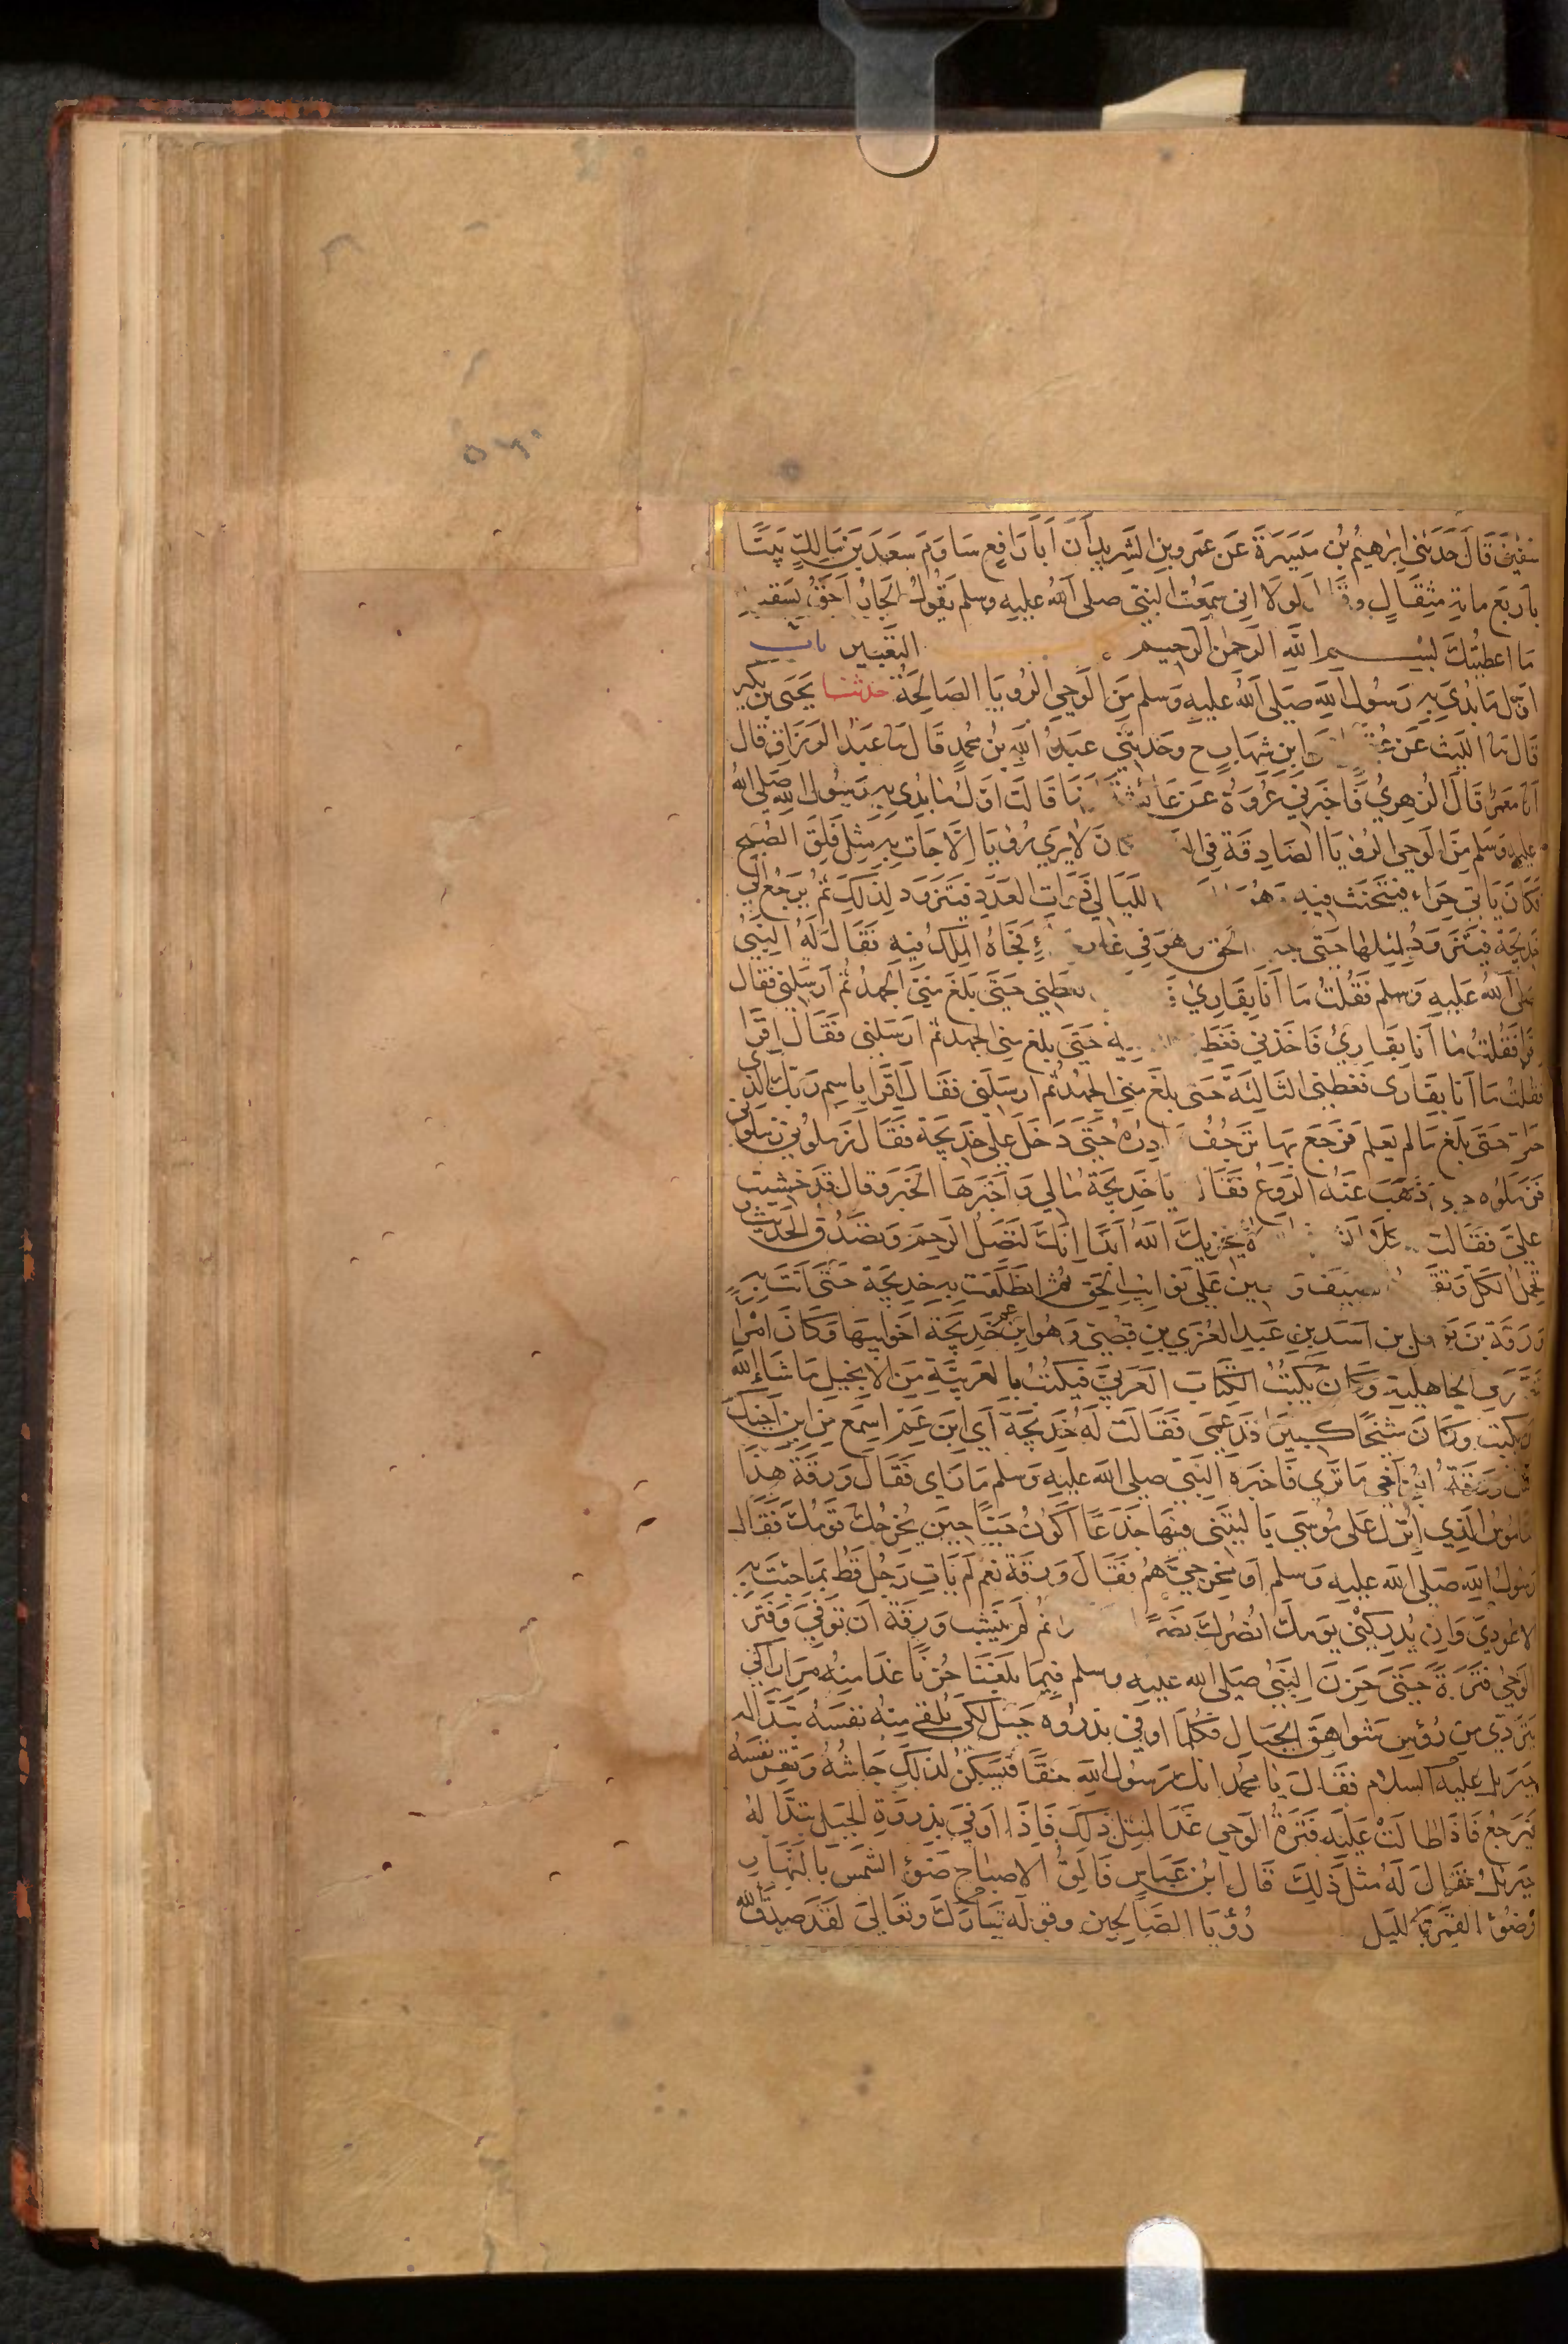 سفين قال حدثني ابرهيم بن ميسرة عن عمرو بن الشريد ان ابا رافع ساوم سعد بن مالك بيتا
باربع ماية مثقال وقال لولا اني سمعت النبي صلى الله عليه وسلم يقول الجار احق بسقبه
ما اعطيتك بسم الله الرحمن الرحيم التعبير باب
اول ما بدي به رسول الله صلى الله عليه وسلم من الوحي الرويا الصالحة حدثنا يحيى بن بكير
قال نا الليث عن ابن شهاب ح وحدثني عبد الله بن محمد قال نا عبد الرزاق قال
انا معمر قال الزهري فاخبرني عروة عن عائشة انها قالت اول ما بدي به رسول الله صلى الله
عليه وسلم من الوحي الرويا الصادقة في ان لا يرى رويا الا جات به مثل فلق الصبح
فكان ياتي حراء فيتحنث فيه وهو الليالي ذوات العدد فيتزود لذلك ثم يرجع الى
خديجة فيتزود لمثلها حتى الحق وهو في غار فجاه الملك فيه فقال له النبي
صلى الله عليه وسلم فقلت ما انا بقارئ فغطني حتى بلغ مني الجهد ثم ارسلني فقال
اقرا فقلت ما انا بقارئ فاخذني فغط ية حتى بلغ مني الجهد ثم ارسلني فقال اقرا
فقلت ما انا بقارى فغطني الثالثة حتى بلغ مني الجهد ثم ارسلني فقال اقرا باسم ربك الذي
حتى بلغ ما لم يعلم فرجع بها ترجف بوادره حتى دخل على خديجة فقال زملوني زملوني
فزملوه ذهب عنه الروع فقال يا خديجة مالي واخبرها الخبر وقال قد خشيت
علي فقالت كلا لا يخزيك الله ابدا انك لتصل الرحم وتصدق الحديث و
تحمل الكل وتقرى الضيف وتعين على نوايب الحق ثم انطلقت به خديجة حتى اتت به
ورقة بن نوفل بن اسد بن عبد العزي بن قصي وهو ابن عم خديجة اخو ابيها وكان امرا
تنصر في الجاهلية وكان يكتب الكتاب العربي فيكتب بالعربية من الانجيل ما شاء الله
ان يكتب وكان شيخا كبيرا قد عمى فقالت له خديجة اي ابن عم اسمع من ابن اخيك
فقال ورقة ابن اخي ما ترى فاخبره النبي صلى الله عليه وسلم ما راى فقال ورقة هذا
الناموس الذي انزل على موسى يا ليتني فيها جذعا اكون حيا حين يخرجك قومك فقال
رسول الله صلى الله عليه وسلم او مخرجي هم فقال ورقة نعم لم يات رجل قط بما جئت به
الا عودي وان يدركني يومك انصرك نصرا ثم لم ينشب ورقة ان توفي وفتر
الوحي فترة حتى حزن النبي صلى الله عليه وسلم فيما بلغنا حزنا غدا منه مرارا كي
يتردي من روس شواهق الجبال فكلما اوفى بذروه جبل لكي يلقي منه نفسه تبدا له
جبريل عليه السلام فقال يا محمد انك رسول الله حقا فيسكن لذلك جاشه وتقر نفسه
فيرجع فاذا طالت عليه فترة الوحي غدا لمثل ذلك فاذا اوفى بذروة الجبل تبدا له
جبريل فقال له مثل ذلك قال ابن عباس فالق الاصباح ضوء الشمس بالنهار
وضوء القمر بالليل رؤيا الصالحين وقوله تبارك وتعالى لقد صدق الله